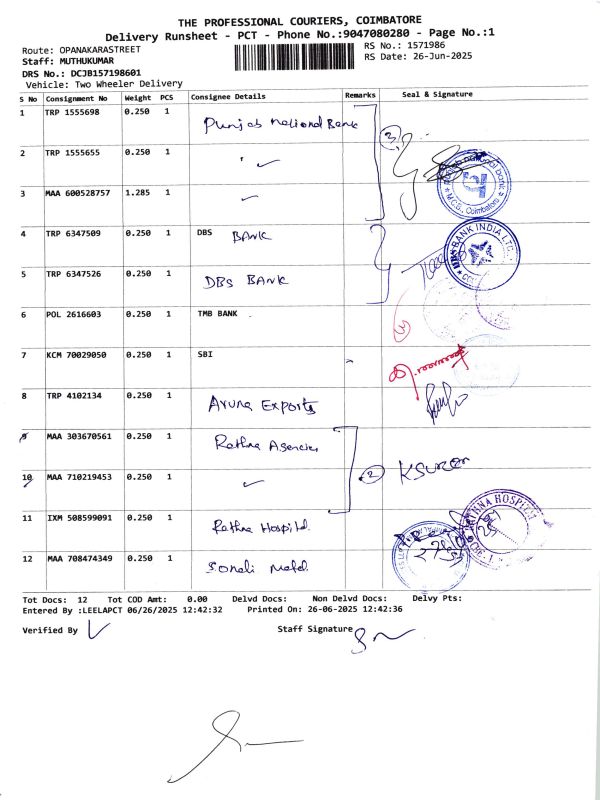 THE PROFESSIONAL COURIERS, COIMBATORE
Delivery Runsheet - PCT - Phone No.:9047080280 - Page No.:1
Route: OPANAKARASTREET
RS No.: 1571986
Staff: MUTHUKUMAR
RS Date: 26-Jun-2025
DRS No.: DCJB157198601
Vehicle: Two Wheeler Delivery
S No Consignment No Weight PCS Consignee Details Remarks Seal & Signature
1 TRP 1555698 0.250 1 Punjab National Bank
3
2 TRP 1555655 0.250 1 "
3 MAA 600528757 1.285 1
M.C.B, Coimbatore
4 TRP 6347509 0.250 1 DBS BANK
DBS BANK INDIA LTD
5 TRP 6347526 0.250 1 DBS BANK
6 POL 2616603 0.250 1 TMB BANK
7 KCM 70029050 0.250 1 SBI
8 TRP 4102134 0.250 1 Aruna Exports
9 MAA 303670561 0.250 1 Rathna Agencies
10 MAA 710219453 0.250 1
2
11 IXM 508599091 0.250 1 Rathna Hospital.
RATHNA HOSPITAL
12 MAA 708474349 0.250 1 Sonali Metal.
Tot Docs: 12 Tot COD Amt: 0.00 Delvd Docs: Non Delvd Docs: Delvy Pts:
Entered By :LEELAPCT 06/26/2025 12:42:32 Printed On: 26-06-2025 12:42:36
Verified By
Staff Signature